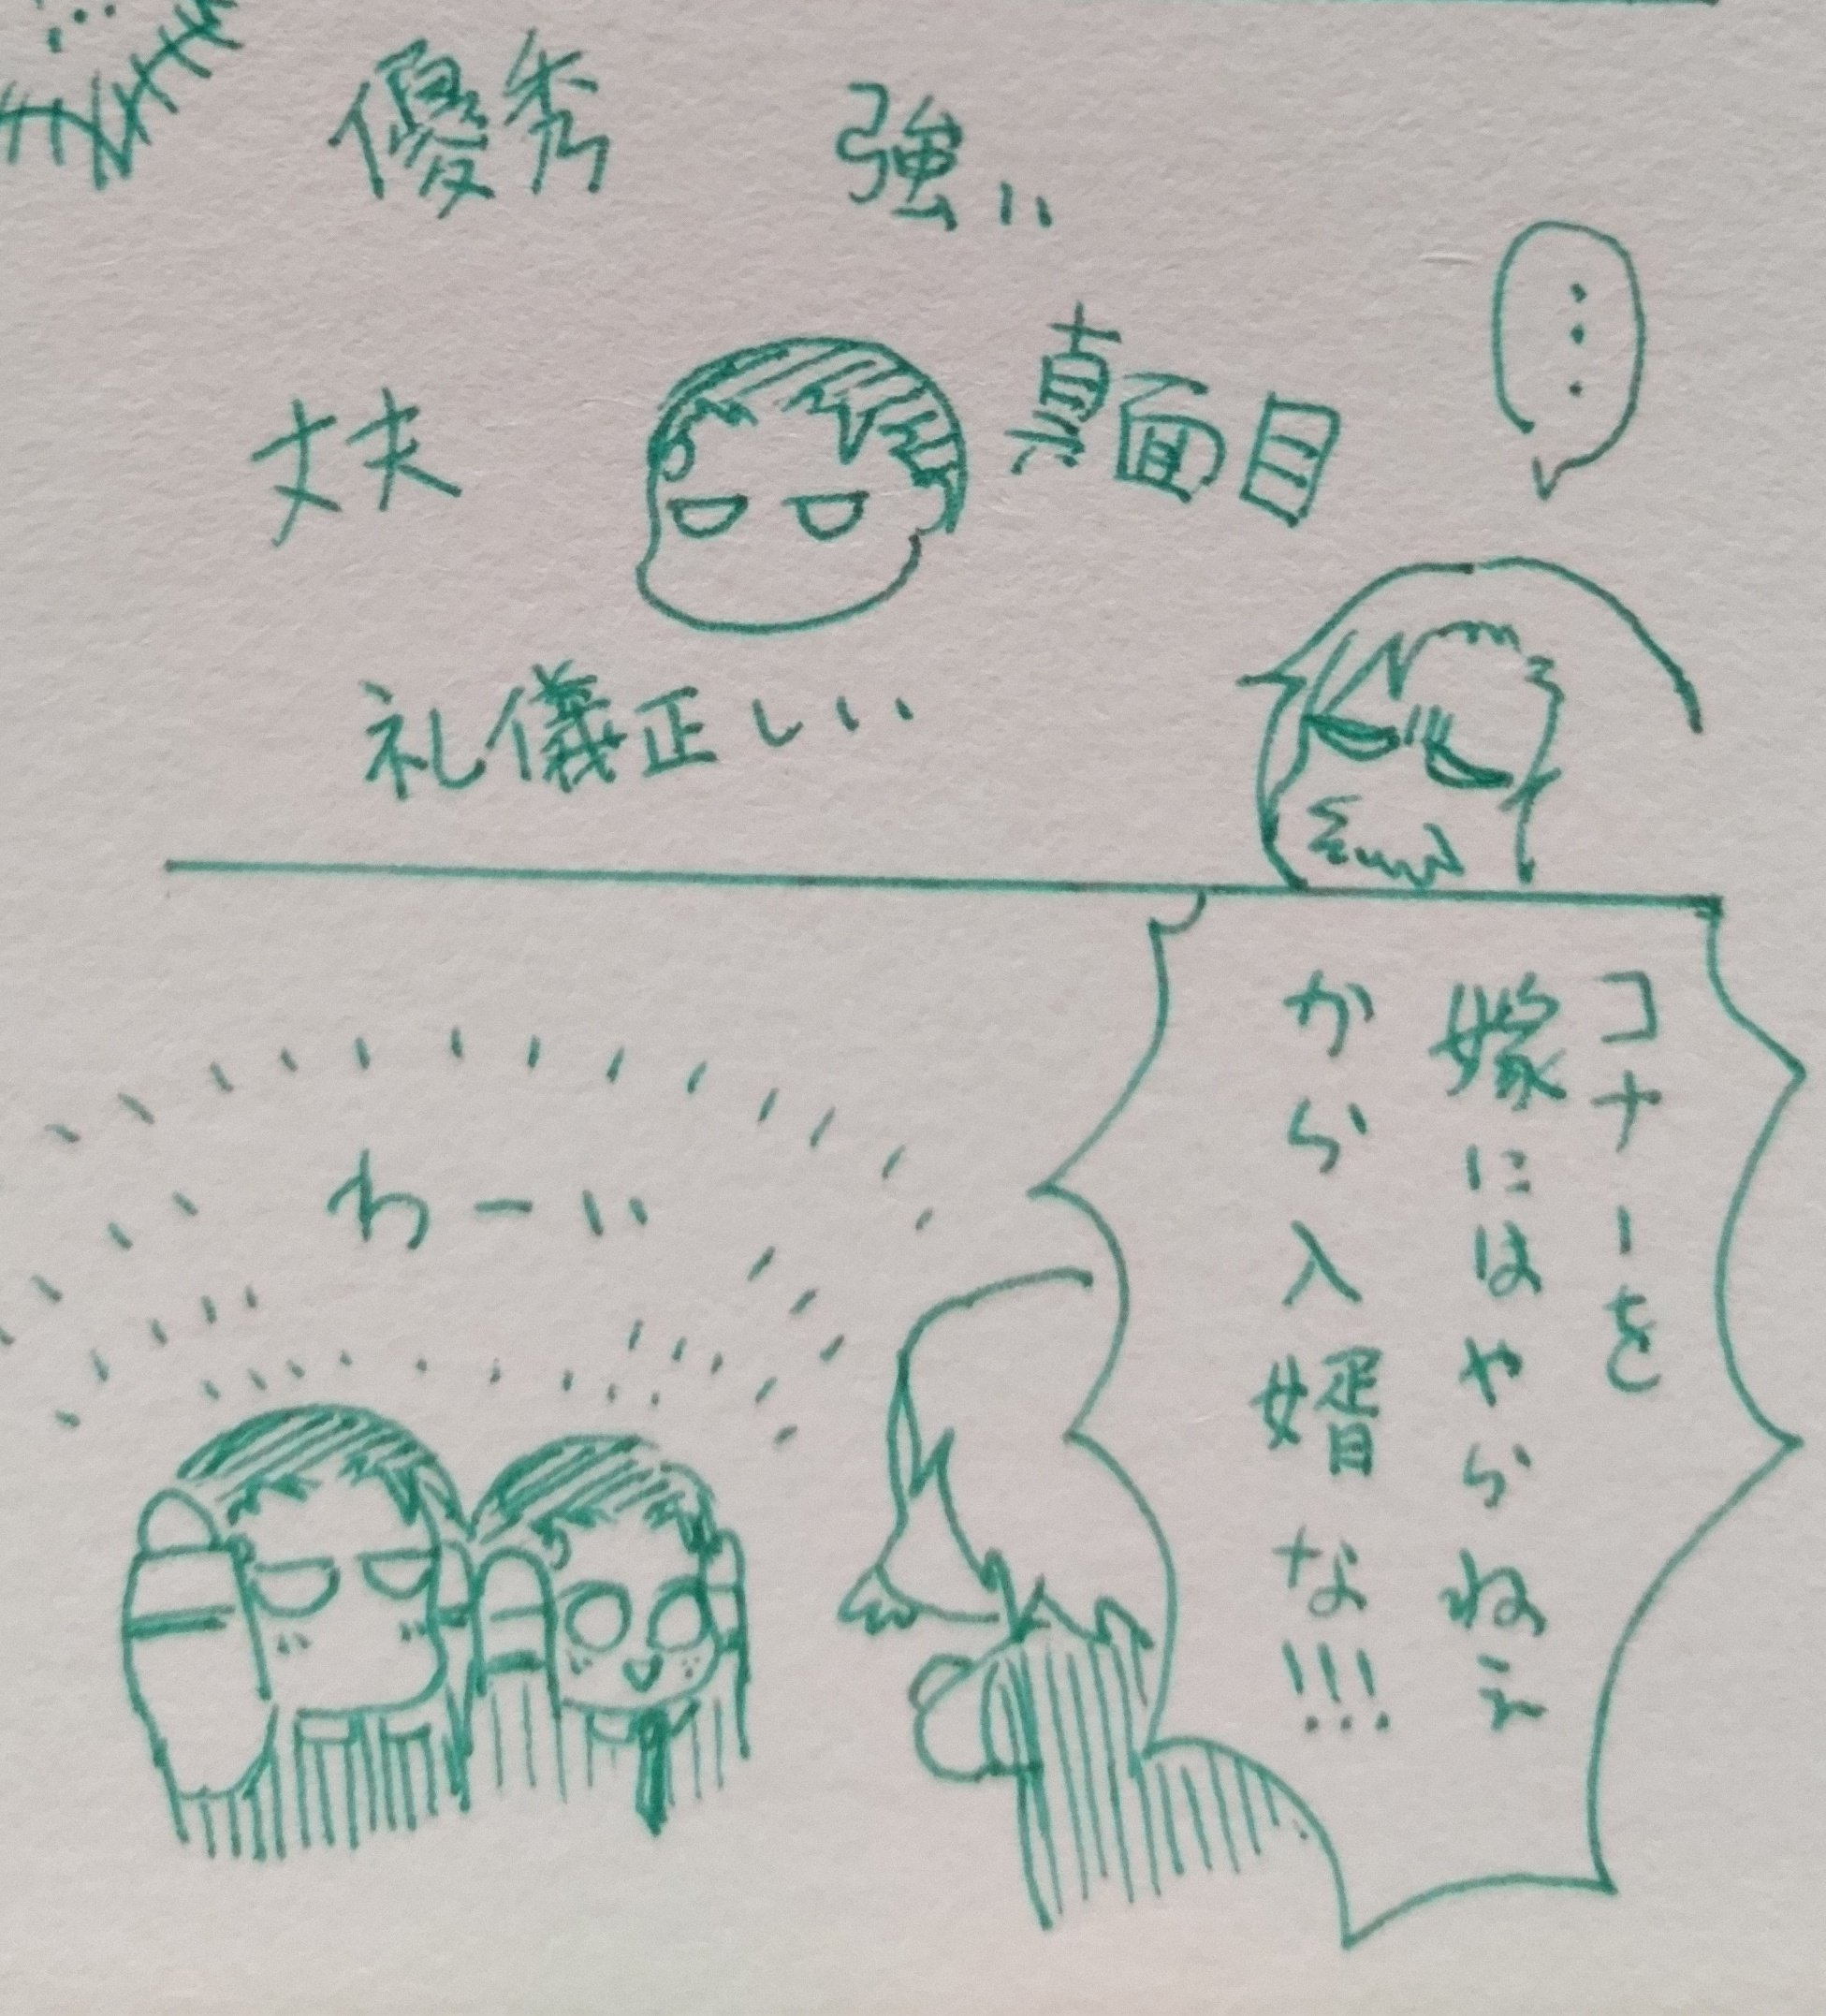 優秀
強い
真面目
丈夫
礼儀正しい
…
コナーを
嫁にはやらねえ
から入婿な!!!
わーい